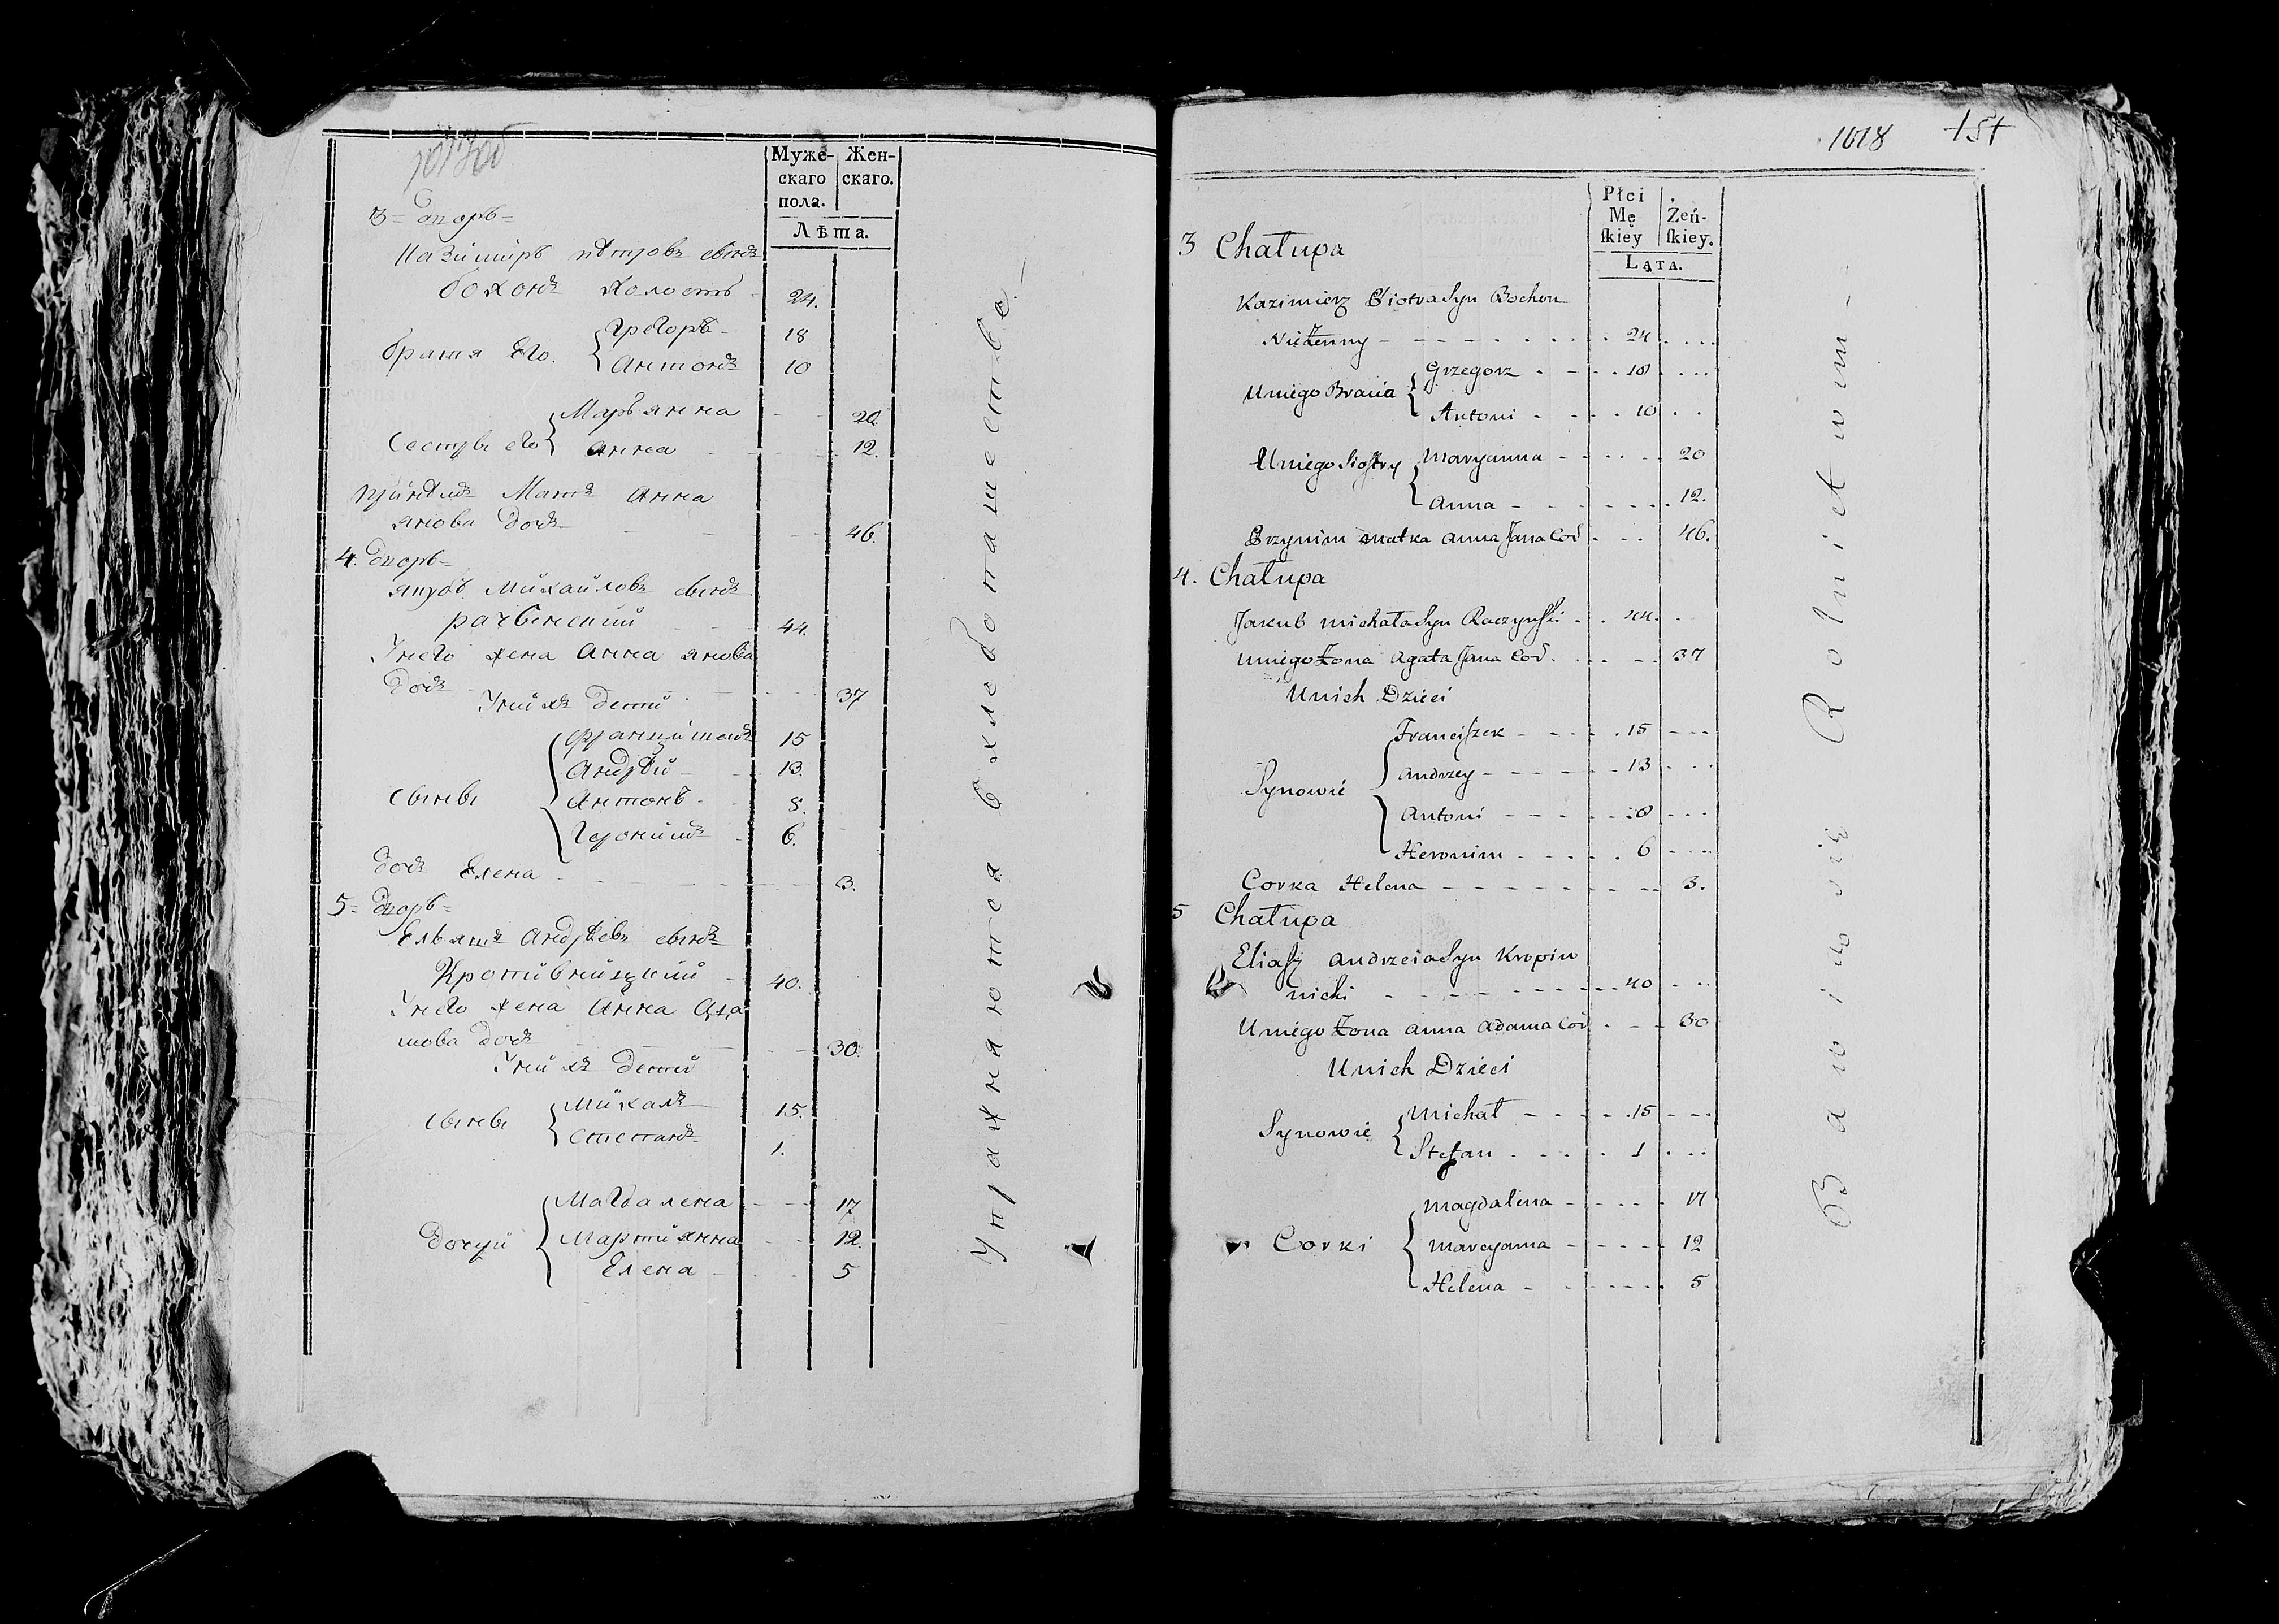 Муже-
скаго
пола.
Жен-
скаго.
Лѣта.
3 = дворъ =
Казимиръ Пѣтровъ сынъ
Бохонъ холостъ 24.
братя Его. { Грегоръ - 18
Антонъ 10
Сестры его { Марьянна - - 20.
Анна - - - 12.
Принѣмъ Матъ Анна
янова дочъ - - - 46.
4. дворъ =
якубъ Михайловъ сынъ
рачѣнский - - 44.
Унего жена Анна янова
дочъ - - - 37
Унихъ дети
Сыны { Францишекъ 15
Андрѣй - 13.
Антонъ - 8.
Геронимъ - 6.
дочъ Елена - - - 3.
5 = дворъ =
Ельяшъ Андрѣевъ сынъ
Кропивницкий - 40.
Унего жена Анна Ада
мова дочъ - - - 30.
Унихъ дети
Сыны { Михалъ 15.
Степанъ 1.
Дочери { Магдалена - - 17
Марцианна - - 12.
Елена - - 5
Упражняются вхлебопашестве. —
1618 151
Płci
Mę
ſkiey
Żeń-
ſkiey.
Lata.
3 Chałupa
Kazimierz Piotra Syn Bochon
Nieżenny - - - - 24
Uniego Bracia { Grzegorz - - - 18
Antoni - - - 10
Uniego Siostry { Maryanna - - - 20
Anna - - - 12.
Przynim matka Anna Jana Cor - - - 46.
4. Chałupa
Jakub Michała Syn Raczyński - - 44.
Uniego Żona Agata Jana Cor. - - - 37
Unich Dzieci
Synowie { Franciszek - - - 15
Andrzey - - - 13
Antoni - - - 8
Heronim - - - 6
Corka Helena - - - 3.
5 Chałupa
Eliasz Andrzeia Syn Kropiw
nicki - - - 40
Uniego Żona Anna Adama Cor - - - 30
Unich Dzieci
Synowie { Michał - - - 15
Stefan - - - 1
Corki { Magdalena - - - 17
Marcyanna - - - 12
Helena - - - 5
Bawią się Rolnictwem -